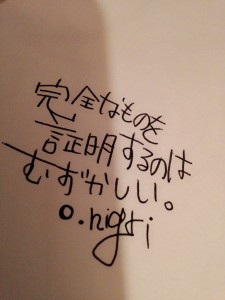 完全なものを
証明するのは
むずかしい。
o.nigiri